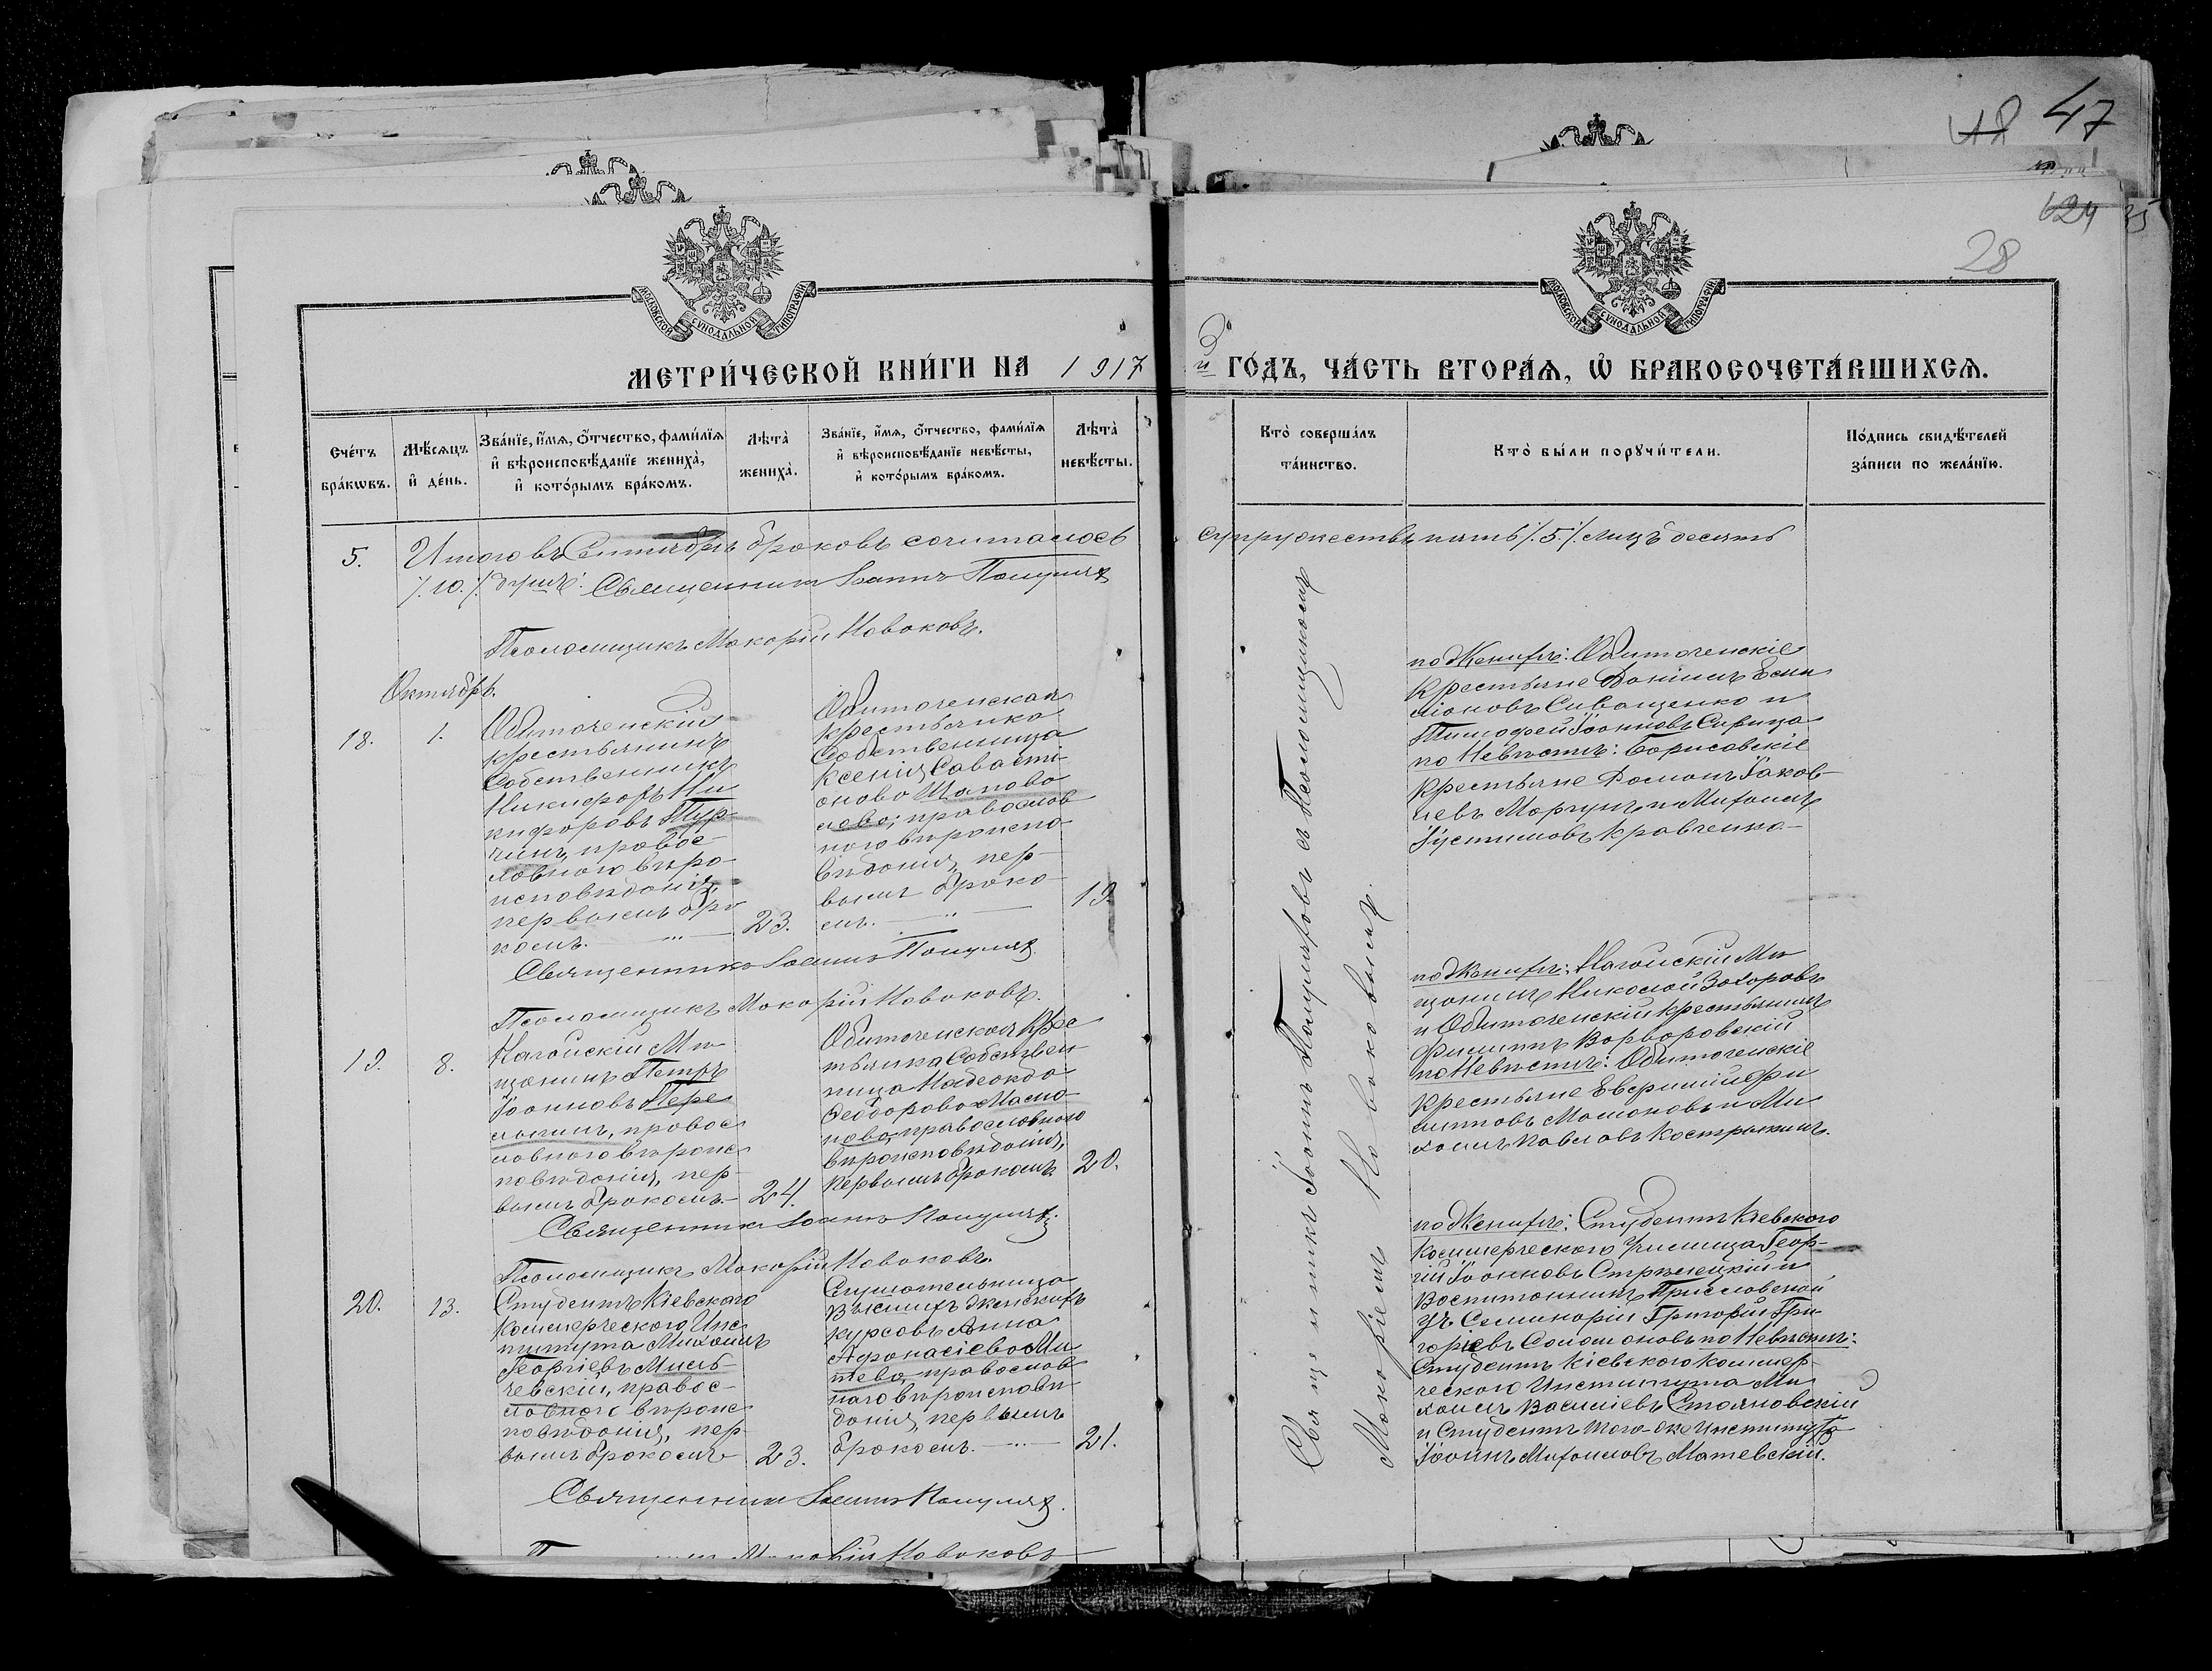 47
624
28
МОСКОВСКОЙ СѴНОДАЛЬНОЙ ТИПОГРАФІИ
МОСКОВСКОЙ СѴНОДАЛЬНОЙ ТИПОГРАФІИ
МЕТРИ́ЧЕСКОЙ КНИ́ГИ НА 1917 й ГО́ДЪ, ЧА́СТЬ ВТОРА́Ѧ, Ѡ҆ БРАКОСОЧЕТА́ВШИХСѦ.
Сче́тъ бра́кѡвъ.
Мѣ́сѧцъ и҆ де́нь.
Зва́нїе, и҆́мѧ, ѻ҆́тчество, фами́лїѧ и҆ вѣроисповѣ́данїе жениха̀, и҆ кото́рымъ бра́комъ.
Лѣта̀ жениха̀.
Зва́нїе, и҆́мѧ, ѻ҆́тчество, фами́лїѧ и҆ вѣроисповѣ́данїе невѣ́сты, и҆ кото́рымъ бра́комъ.
Лѣта̀ невѣ́сты.
Кто̀ соверша́лъ та́инство.
Кто̀ бы́ли порꙋчи́тели.
По́дпись свидѣ́телей за́писи по жела́нїю.
5. Итого въ Сентябрѣ браковъ сочиталось супружествъ пять /.5./. лицъ десять
/.10./. душъ. Священникъ Іоаннъ
Псаломщикъ Макарій Новаковъ.
Октябрь.
18. 1.
Обиточенскій
крестьянинъ
Собственникъ
Никифоръ Ни
кифоровъ Тур-
чинъ, правос-
лавнаго вѣро-
исповѣданія,
первымъ бра
комъ. 23.
Обиточенская
крестьянка
Собственница
Ксенія Савасті-
анова Шапова
лова; православ
наго вѣроиспо-
вѣданія, пер-
вымъ брако-
мъ. 19.
по Женихѣ: Обиточенскіе
крестьяне Даніилъ
Сиващенко и
Тимофей Іоанновъ Сирица
по Невѣстѣ: Борисовскіе
крестьяне Романъ Іаков-
левъ Моргунъ и Михаилъ
Іустиновъ Кравченко.
Священникъ Іоаннъ
Псаломщикъ Макарій Новаковъ.
19. 8.
Ногайскій Мѣ-
щанинъ Петръ
Іоанновъ Пере
, правос
лавнаго вѣроис
повѣданія, пер-
вымъ бракомъ. 24.
Обиточенская Крес
тьянка Собствен-
ница Надежда
Феодорова Масло-
, православнаго
вѣроисповѣданія,
первымъ бракомъ. 20.
по Женихѣ: Ногайскій Мѣ
щанинъ Николай Захаровъ
и Обиточенскій крестьянинъ
Филиппъ Варваровскій
по Невѣстѣ: Обиточенскіе
крестьяне Фи
липповъ и Ми
хаилъ Павловъ Кострыкинъ.
Священникъ Іоаннъ
Псаломщикъ Макарій Новаковъ.
20. 13.
Студентъ Кіевскаго
Коммерческаго Инс
титута Михаилъ
Георгіевъ Миль-
чевскій, правос-
лавнаго вѣроис
повѣданія, пер-
вымъ бракомъ 23.
Слушательница
Высшихъ женскихъ
курсовъ Анна
Афанасіева Ми
, православ
наго вѣроисповѣ-
данія, первымъ
бракомъ. 21.
по Женихѣ: Студентъ Кіевскаго
Коммерческаго Училища Геор-
гій Іоанновъ Стрѣлецкій и
Воспитанникъ
Уч. Семинаріи Григорій Гри
горіевъ Соломоновъ по Невѣстѣ:
Студентъ Кіевскаго Коммер-
ческаго Института Ми
хаилъ Василіевъ Стояновскій
и Студентъ того-же Института
Іоаннъ Михаиловъ Матевскій.
Священникъ Іоаннъ
Макарій Новаковъ
Священникъ Іоаннъ съ Псаломщикомъ
Макаріемъ Новаковымъ.